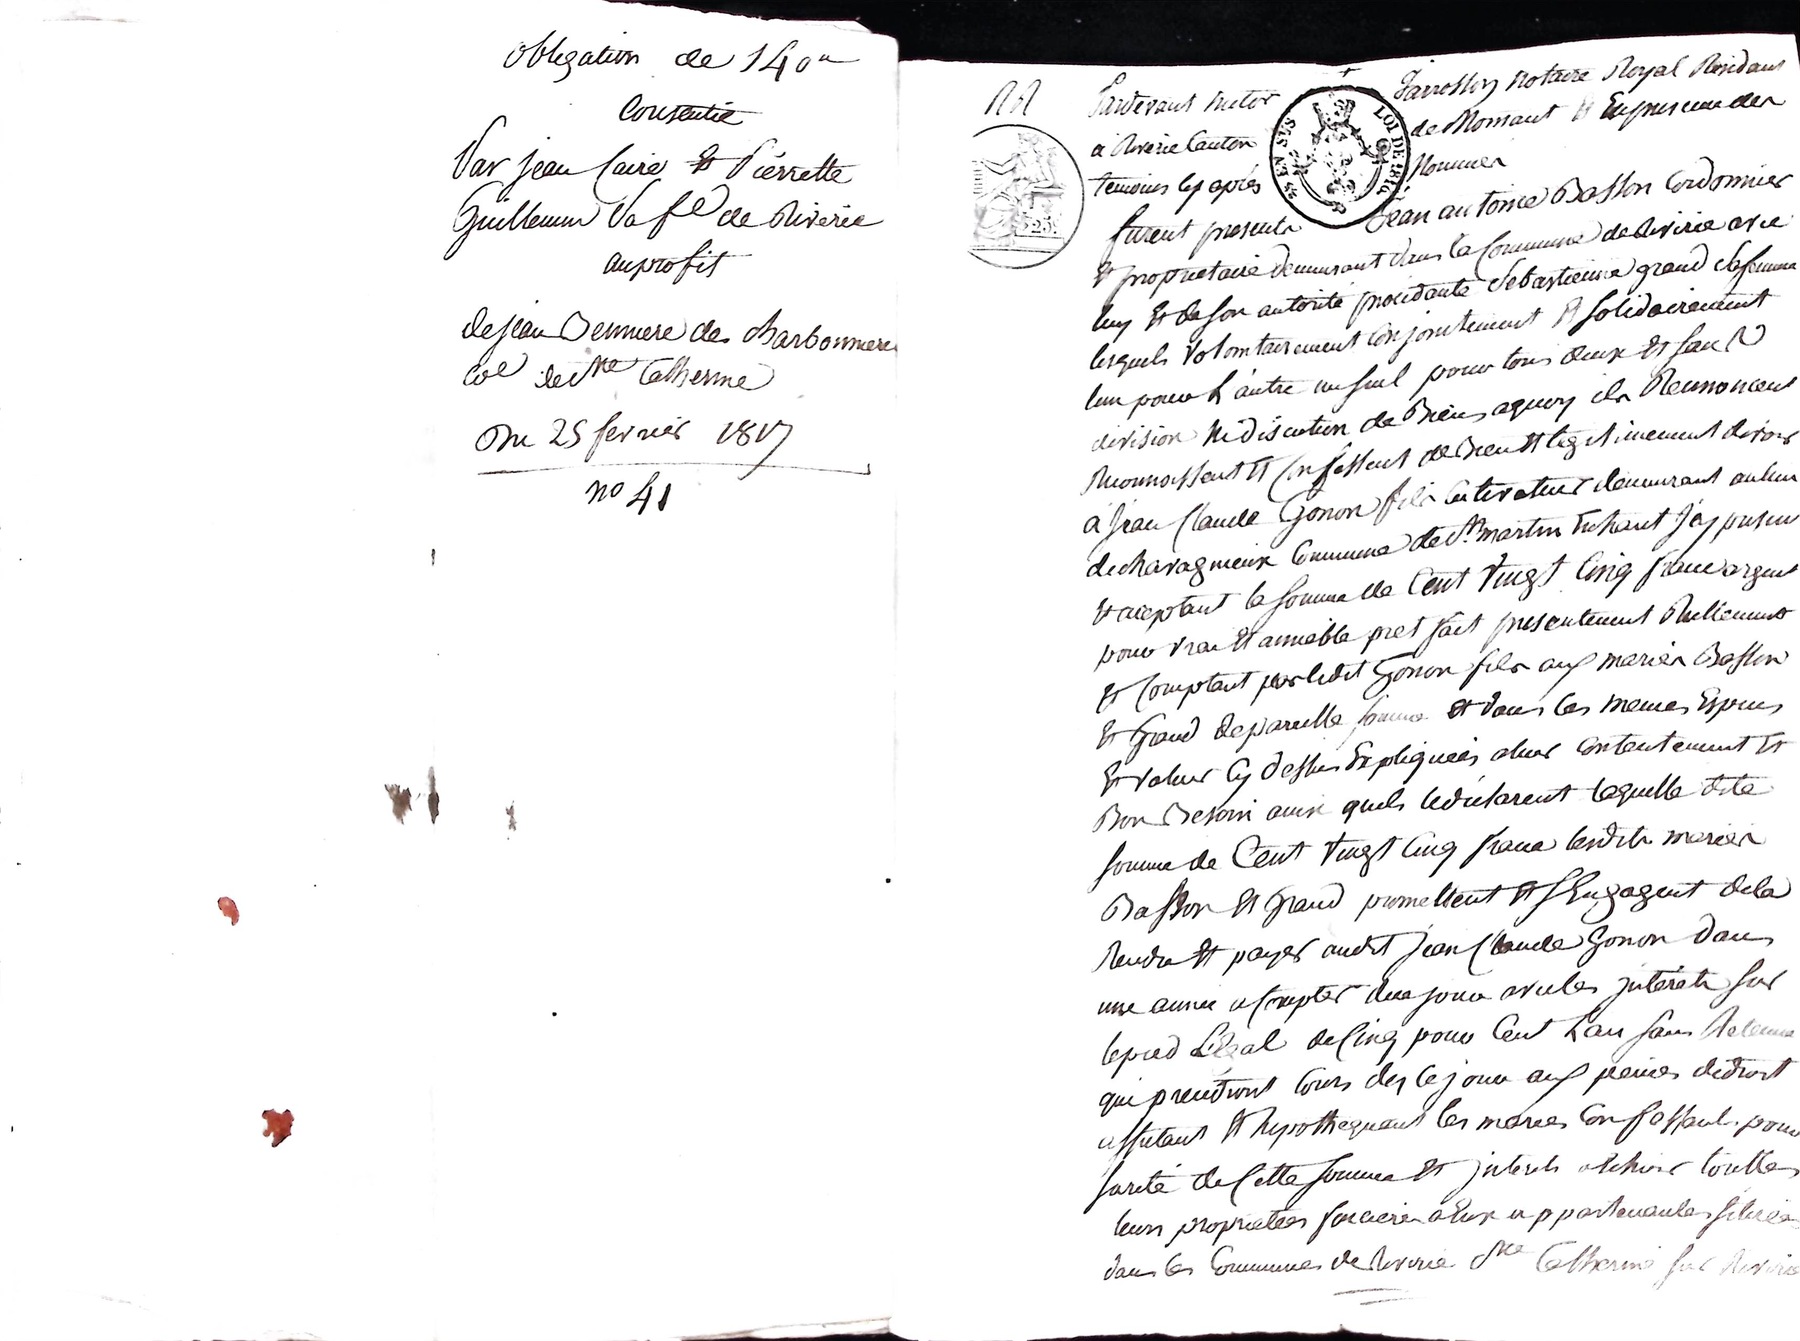 obligation de 140 #
Consentie
Par jean Claire et Pierrette
Guillaume Sa fe de Riverie
auprofit
de jean de charbonniere
coe de Ste Catherine
Du 25 fevrier 1817
no 41
Pardevant victor Jarrosson notaire Royal Residant
a Riverie Canton de Mornant et En presence des
temoins cy apres Nommés
furent presents Jean antoine Basson Cordonnier
et proprietaire demeurant dans la Commune de Riverie avec
luy et de son autorité procedante Sebastienne grand Sa femme
lesquels volontairement Conjointement et solidairement
lun pour l'autre un seul pour tous deux et sans
division ni discution de Biens aquoy ils Renoncent
Reconnoissent et Confessent de Bien et legitimement devoir
a jean Claude Gonon fils Cultivateur demeurant au lieu
de chavagnieux Commune de St martin En haut jcy present
et aceptant la somme de Cent Vingt Cinq francs argent
pour vrai et amiable pret fait presentement Reellement
et Comptant par ledit Gonon fils aux mariés Basson
et Grand de pareille somme et dans les memes Especes
et valeur cy dessus Expliquées a leur contentement et
Bon Besoin ainsi quils le declarent laquelle dite
somme de Cent Vingt Cinq francs lesdits mariés
Basson et Grand promettent et s'Engagent de la
Rendre et payer audit jean Claude Gonon dans
une année a Compter de ce jour avec les jnterets sur
le pied Légal de Cinq pour Cent L'an sans Retenue
qui prendront Cours des ce jour aux peines de droit
affectant et hypothequant les mariés Confessants pour
sureté de Cette somme et jnterets a Echoir touttes
leurs proprietées foncieres a Eux appartenantes situées
dans les Communes de Riverie Ste Catherine sur Riverie
2S EN SUS
LOI DE 1816
25